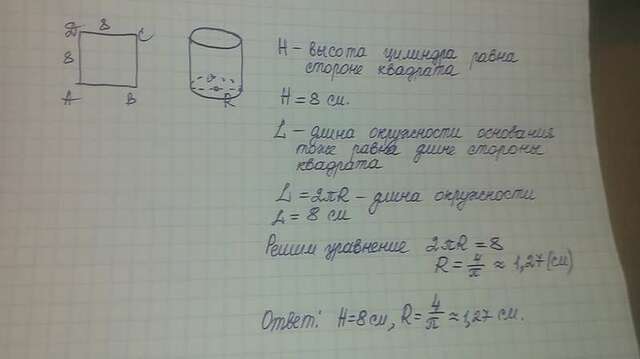 D 8 C
8
A B
R
H – высота цилиндра равна
стороне квадрата
H = 8 см.
L – длина окружности основания
тоже равна длине стороны
квадрата
L = 2πR – длина окружности
L = 8 см
Решим уравнение 2πR = 8
R = 4/π ≈ 1,27 (см)
Ответ: H=8см, R = 4/π ≈ 1,27 см.